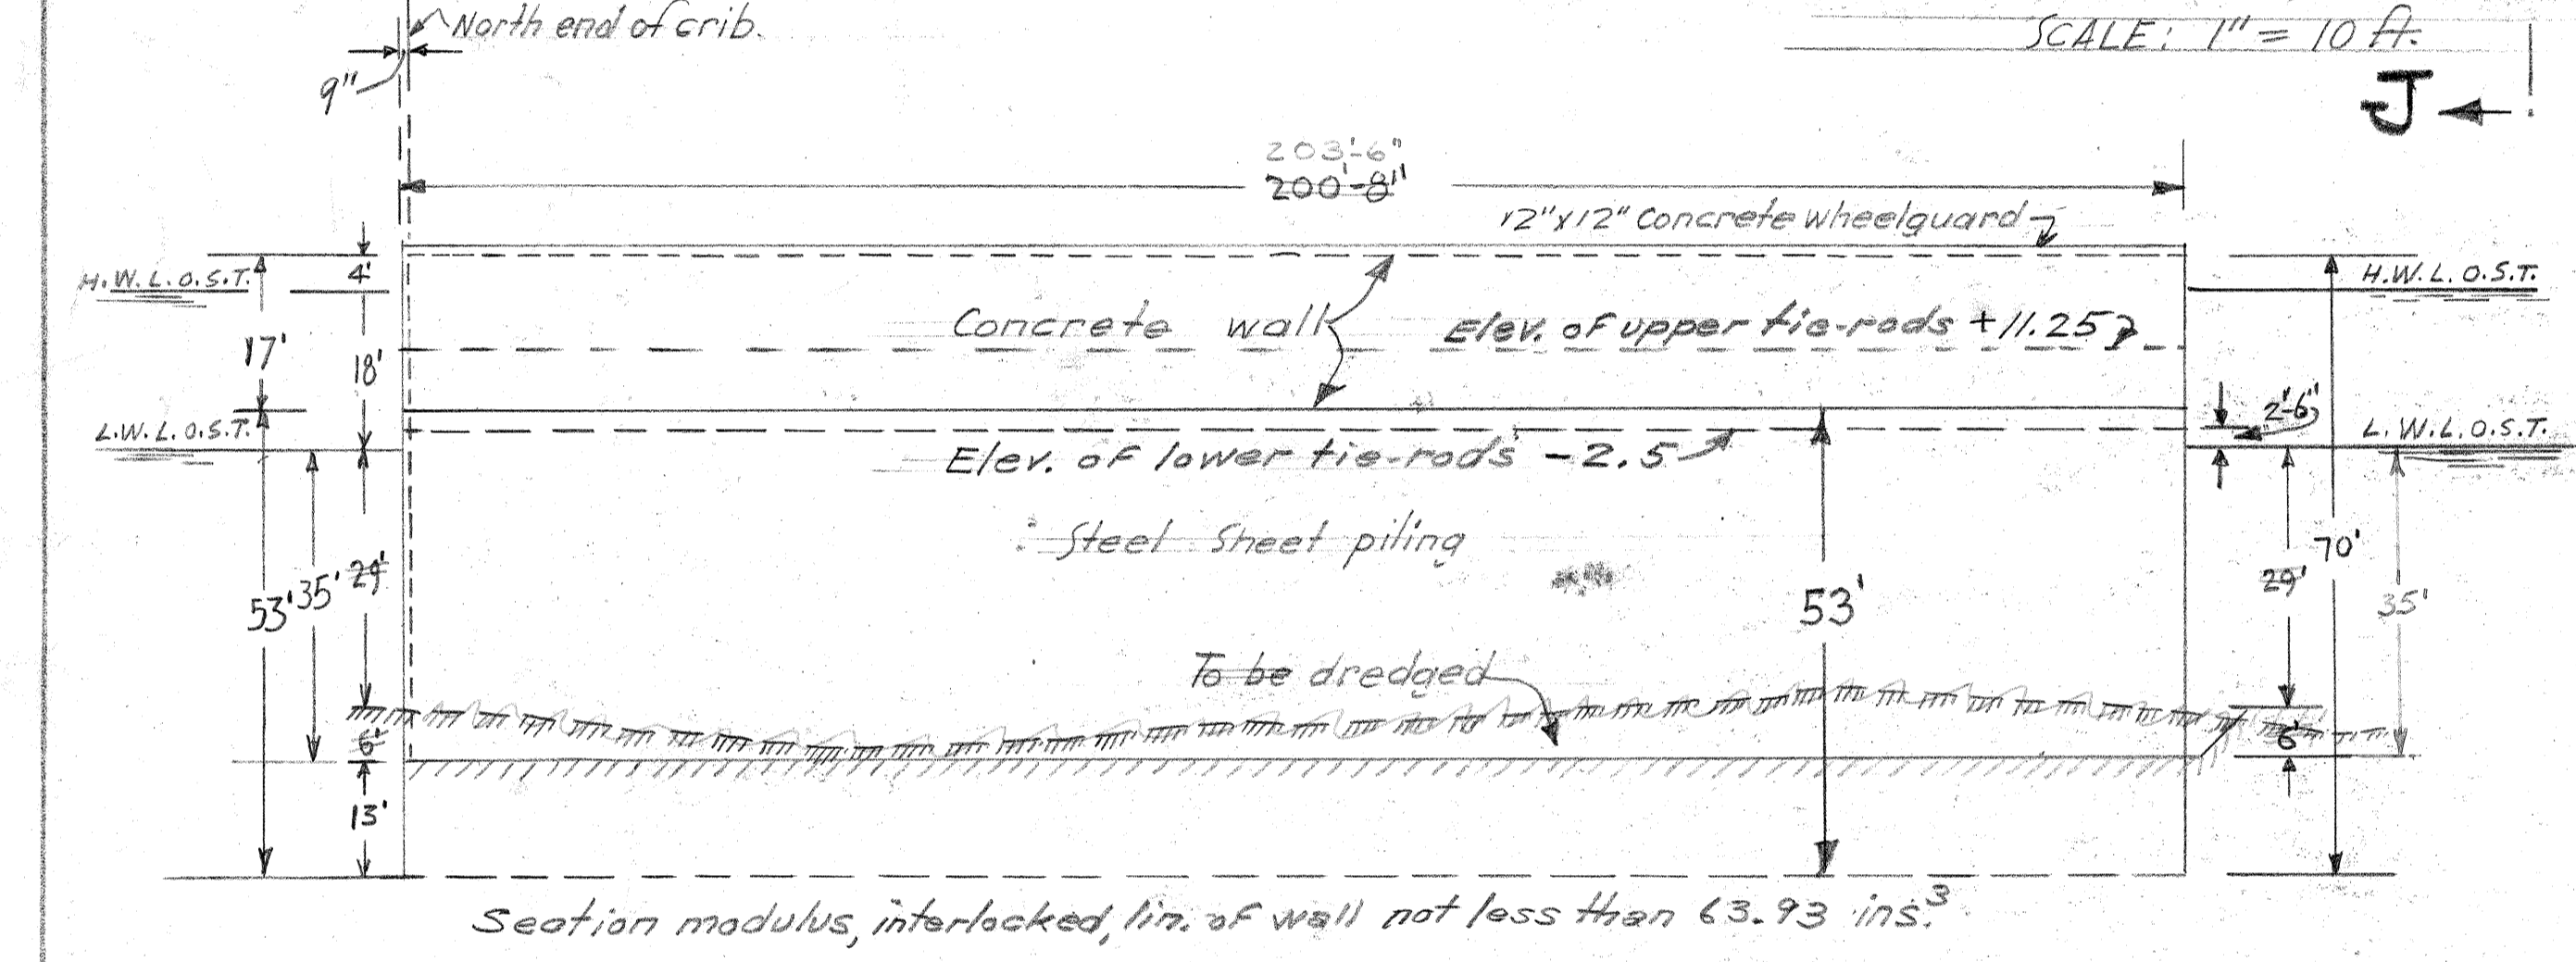 North end of crib.
SCALE: 1" = 10 ft.
9"
J
203'-6"
200'-8"
12"x12" Concrete wheelguard
H.W.L.O.S.T.
4'
H.W.L. O.S.T.
Concrete wall
Elev. of upper tie-rods +11.25
17'
18'
2'-6"
L.W.L.O.S.T.
L.W.L.O.S.T.
Elev. of lower tie-rods -2.5
Steel Sheet piling
53'
35'
29'
53'
70'
29'
35'
To be dredged
6'
6'
13'
Section modulus, interlocked, lin. of wall not less than 63.93 ins.³